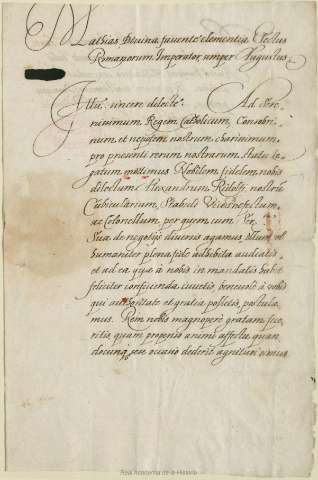 Mathias Divina favente clementia Electus
Romanorum Imperator semper Augustus.
sincere dilecte. Ad Sere-
nissimum Regem Catholicum, Consobri-
num et nepotem nostrum charissimum,
pro præsenti rerum nostrarum statu le-
gatum mittimus Nobilem fidelem nobis
dilectum Alexandrum Ridolfi, nostrum
Cubicularium, Stabuli Vicepræfectum,
ac Colonellum, per quem cum
Sua de negotijs diversis agamus,
humaniter plena fide adhibita audiatis
et ad ea quæ à nobis in mandatis habet
feliciter conficienda, iuvetis, benevolè à vobis
qui authoritate et gratia polletis, postula-
mus. Rem nobis magnopere gratam fece-
ritis, quam propenso animi affectu, quan-
docunq sese occasio dederit agnituri sumus.
Real Academia de la Historia